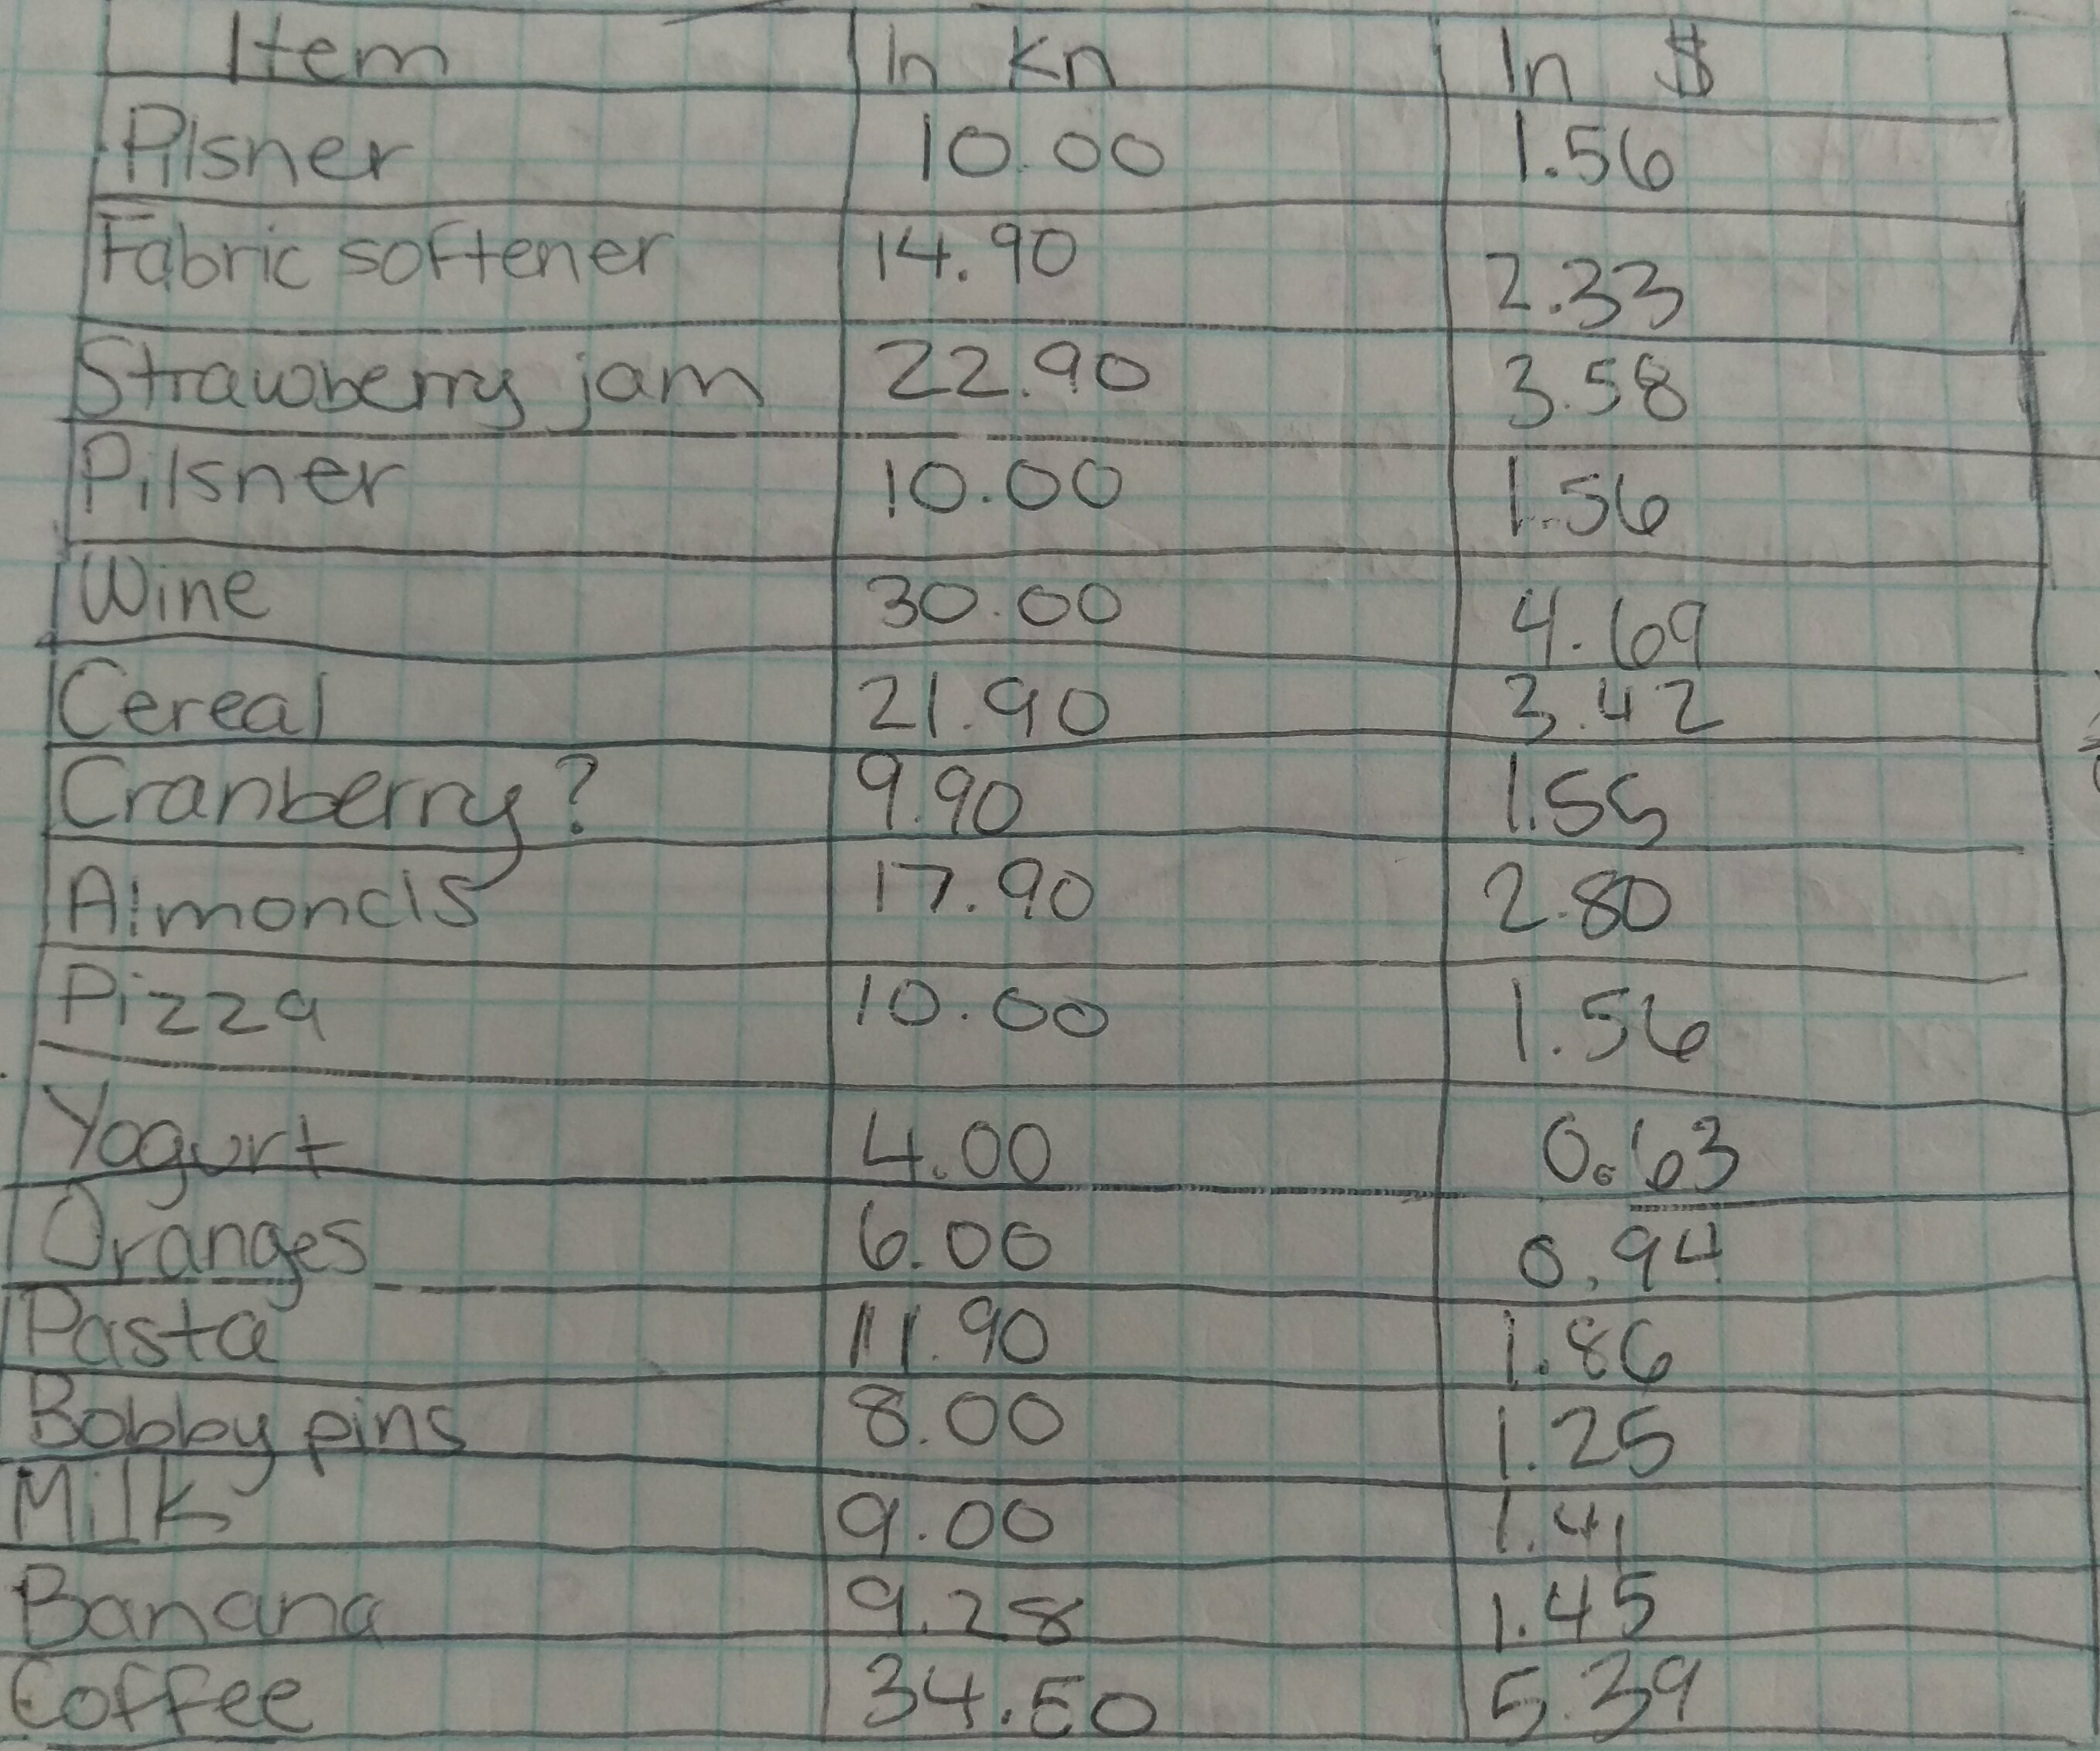 Item In Kn In $
Pilsner 10.00 1.56
Fabric softener 14.90 2.33
Strawberry jam 22.90 3.58
Pilsner 10.00 1.56
Wine 30.00 4.69
Cereal 21.90 3.42
Cranberry? 9.90 1.55
Almonds 17.90 2.80
Pizza 10.00 1.56
Yogurt 4.00 0.63
Oranges 6.00 0.94
Pasta 11.90 1.86
Bobby pins 8.00 1.25
Milk 9.00 1.41
Banana 9.28 1.45
Coffee 34.50 5.39